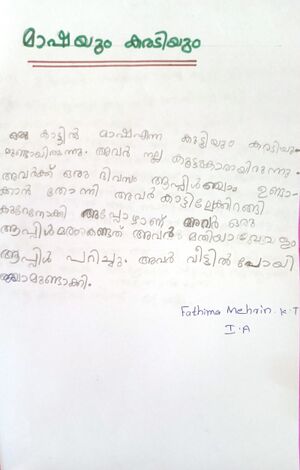 മാഷയും കരടിയും
ഒരു കാട്ടിൽ മാഷഎന്ന കുട്ടിയും കരടിയു-
മുണ്ടായിരുന്നു. അവർ നല്ല കൂട്ടുകാരായിരുന്നു.
അവർക്ക് ഒരു ദിവസം ആപ്പിൾജാം ഉണ്ടാ-
ക്കാൻ തോന്നി അവർ കാട്ടിലേക്കിറങ്ങി
കുറേനോക്കി അപ്പോഴാണ് അവർ ഒരു
ആപ്പിൾമരംകണ്ടത് അവർ മതിയാവോളം
ആപ്പിൾ പറിച്ചു. അവർ വീട്ടിൽ പോയി
ജാമുണ്ടാക്കി.
Fathima Mehrin. K.T
I.A